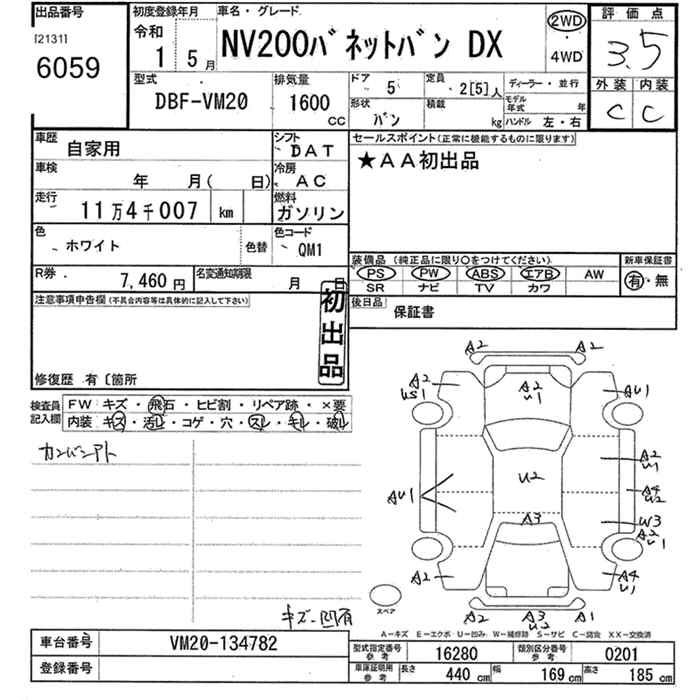 出品番号
[2131]
6059
初度登録年月
令和
1 5月
車名・グレード
NV200バネットバン DX
2WD
・
4WD
評価点
3.5
外装 内装
C C
型式
DBF-VM20
排気量
1600
CC
ドア 5
定員 2[5]人
ディーラー・並行
形状 バン
積載 kg
モデル年式 年
ハンドル 左・右
車歴
自家用
シフト
DAT
車検
年 月( 日)
冷房
AC
走行
11万4千007 km
燃料
ガソリン
色
ホワイト
色替
色コード
QM1
R券
7,460円
名変通知期限
月 日
セールスポイント(正常に機能するものに限ります)
★AA初出品
装備品(純正品に限り○をつけてください)
PS PW ABS エアB AW
SR ナビ TV カワ
新車保証書
有・無
後日品
保証書
注意事項申告欄(不具合内容等は具体的に記入して下さい)
初出品
修復歴 有〔箇所
検査員記入欄
FW キズ・飛石・ヒビ割・リペア跡・×要
内装 キズ・汚レ・コゲ・穴・スレ・キレ・破レ
A2 A2
A2
US1
A2
U1
AU1
A2
U1
U2
A4
U2
AU1
A3
W3
A2
U1
A2
A4
U1
スペア
A2 A3
U2
A1
キズ・凹有
A-キズ E-エクボ U-凹み W-補修跡 S-サビ C-腐食 XX-交換済
車台番号
VM20-134782
登録番号
型式指定番号
参考
16280
類別区分番号
参考
0201
車庫証明用
参考
長さ 440 cm
幅 169 cm
高さ 185 cm